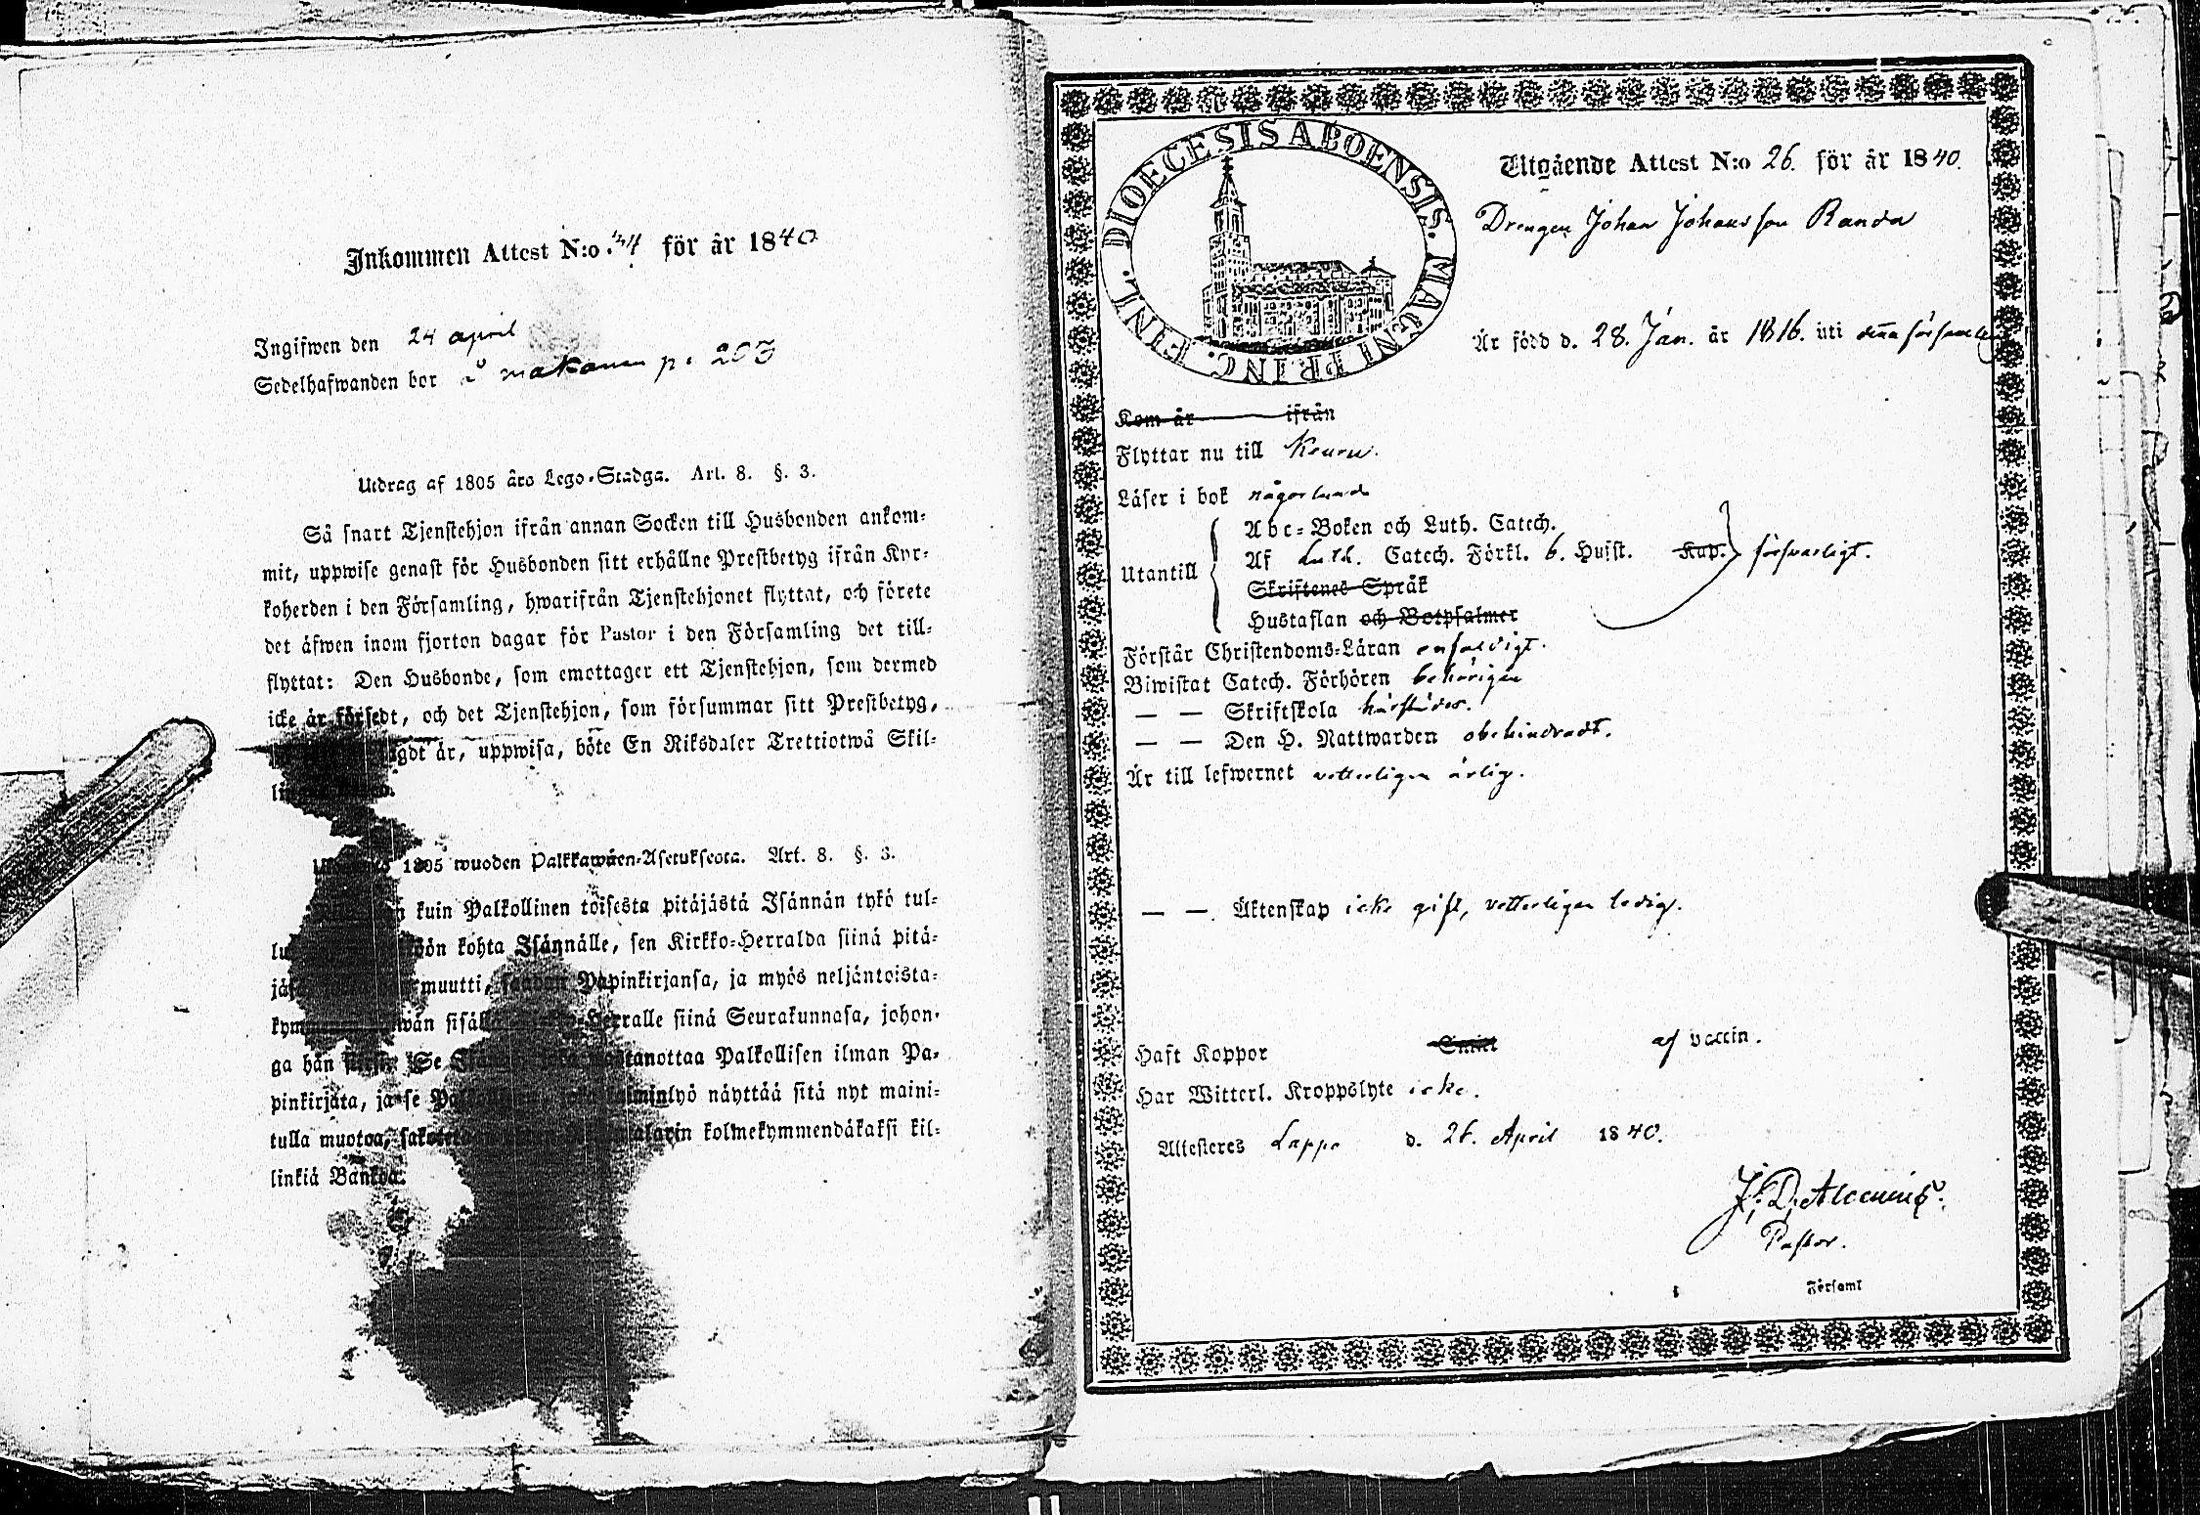 Inkommen Attest N:o 34 för år 1840
Ingifwen den 24 april
Sedelhafwanden bor å makanen p. 203
Utdrag af 1805 års Lego-Stadga. Art. 8. §. 3.
Så snart Tjenstehjon ifrån annan Socken till Husbonden ankom-
mit, uppwise genast för Husbonden sitt erhållne Prestbetyg ifrån Kyr-
koherden i den Församling, hwarifrån Tjenstehjonet flyttat, och förete
det äfwen inom fjorton dagar för Pastor i den Församling det till-
flyttat: Den Husbonde, som emottager ett Tjenstehjon, som dermed
icke är försedt, och det Tjenstehjon, som försummar sitt Prestbetyg,
är, uppwisa, böte En Riksdaler Trettiotwå Skil-
1805 wuoden Palkkawäen-Asetuksesta. Art. 8. §. 3.
kuin Palkollinen toisesta pitäjästä Isännän tykö tul-
kohta Isännälle, sen Kirkko-Herralda siinä pitä-
muutti, Papinkirjansa, ja myös neljäntoista-
siinä Seurakunnasa, johon-
ga hän Se Palkollisen ilman Pa-
pinkirjata, ja se näyttää sitä nyt maini-
tulla muotoa, kolmekymmendäkaksi kil-
linkiä Bankoa.
DIOECESIS ABOENSIS. MAGNI PRINC. FINL.
Utgående Attest N:o 26. för år 1840.
Drengen Johan Johansson Randa
Är född d. 28. Jan. år 1816. uti denna församling
Kom år ifrån
Flyttar nu till Keuru.
Läser i bok någorlunda
Utantill
Abc-Boken och Luth. Catech.
Af Luth. Catech. Förkl. 6. Hufst. Kap. försvarligt.
Skriftenes Språk
Hustaflan och Botpsalmer
Förstår Christendoms-Läran enfaldigt.
Biwistat Catech. Förhören behörigen
— — Skriftskola härstädes.
— — Den H. Nattwarden obehindradt.
Är till lefwernet vetterligen ärlig.
— — Äktenskap icke gift, vetterligen ledig.
Haft Koppor Smitt af vaccin.
Har Witterl. Kroppslyte icke.
Attesteres Lappo d. 26. April 1840.
Pastor.
Församl